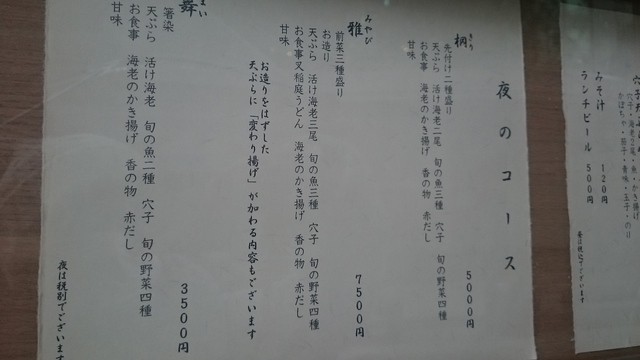 穴子・海老2尾・魚・かき揚げ
かぼちゃ・茄子・青味・玉子・のり
みそ汁 120円
ランチビール 500円
昼は税込でございます
夜のコース
桐 きり 5000円
先付け二種盛り
天ぷら 活け海老二尾 旬の魚三種 穴子 旬の野菜四種
お食事 海老のかき揚げ 香の物 赤だし
甘味
雅 みやび 7500円
前菜三種盛り
お造り
天ぷら 活け海老三尾 旬の魚三種 穴子 旬の野菜四種
お食事又稲庭うどん 海老のかき揚げ 香の物 赤だし
甘味
お造りをはずした
天ぷらに「変わり揚げ」が加わる内容もございます
舞 まい 3500円
箸染
天ぷら 活け海老 旬の魚二種 穴子 旬の野菜四種
お食事 海老のかき揚げ 香の物 赤だし
甘味
夜は税別でございます